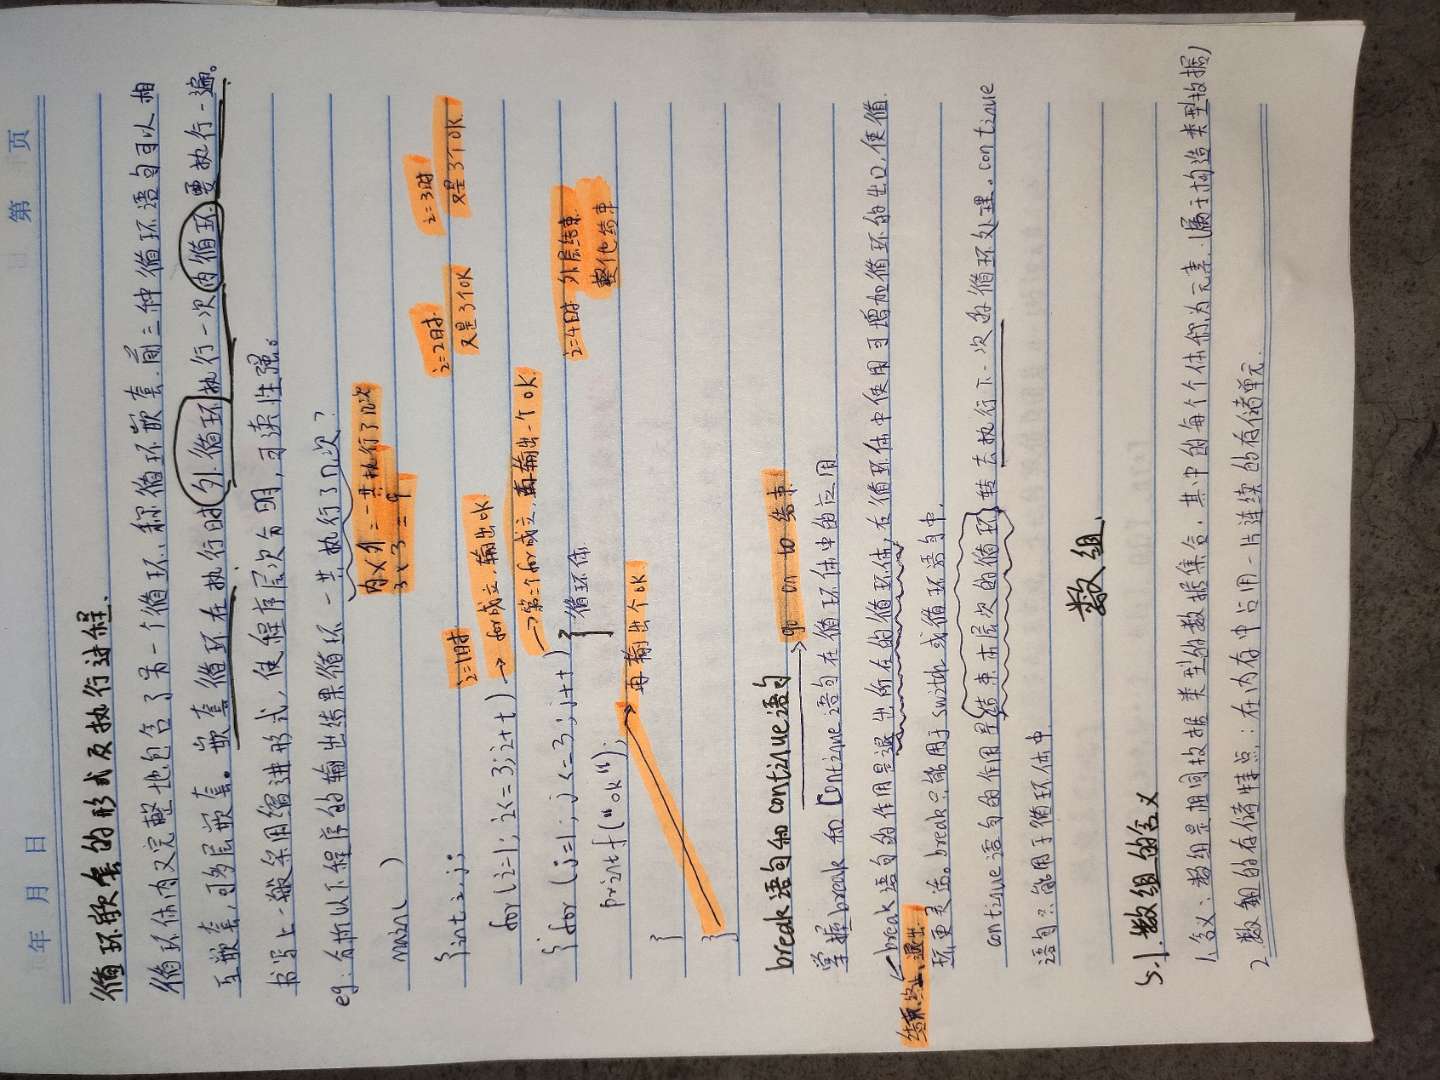 年 月 日 第 页
循环嵌套的形式及执行过程.
循环体内又完整地包含了另一个循环,称循环嵌套.前三种循环语句可以相
互嵌套,可多层嵌套。嵌套循环在执行时外循环执行一次内循环要执行一遍。
书写上一般采用缩进形式,使程序层次分明,可读性强。
eg:分析以下程序的输出结果循环一共执行了几次?
内×外=一共执行了几次
3×3=9
main( )
{int i,j;
i=1时
i=2时
又是3个OK
i=3时
又是3个OK.
for(i=1;i<=3;i++) → for成立,输出OK
{for(j=1;j<=3;j++) →第二个for成立,再输出一个OK.
循环体
i=4时 外层结束.
整体结束
printf("ok");
再输出个OK
}
}
break语句和continue语句 → go on to 结束!
掌握break和Continue语句在循环体中的应用
break语句的作用是退出所在的循环体,在循环体中使用可增加循环的出口,使循
结束,终止,退出.
环更灵活。break只能用于switch或循环语句中.
continue语句的作用是结束本层次的循环,转去执行下一次的循环处理。continue
语句只能用于循环体中
数组.
5.1.数组的含义
1.含义:数组是相同数据类型的数据集合.其中的每个个体称为元素.(属于构造类型数据)
2.数组的存储特点:在内存中占用一片连续的存储单元.